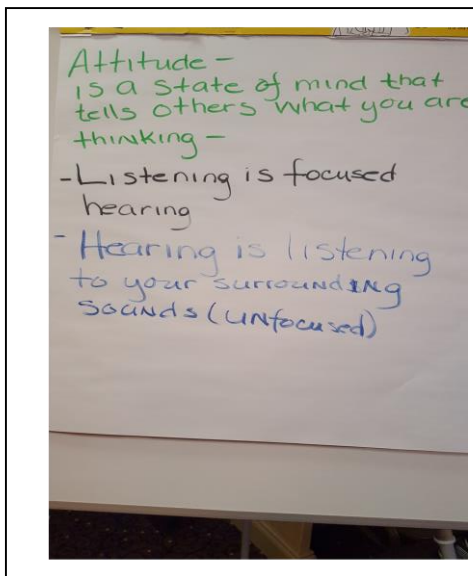 Attitude -
is a state of mind that
tells others what you are
thinking -
- Listening is focused
hearing
- Hearing is listening
to your surrounding
sounds (unfocused)